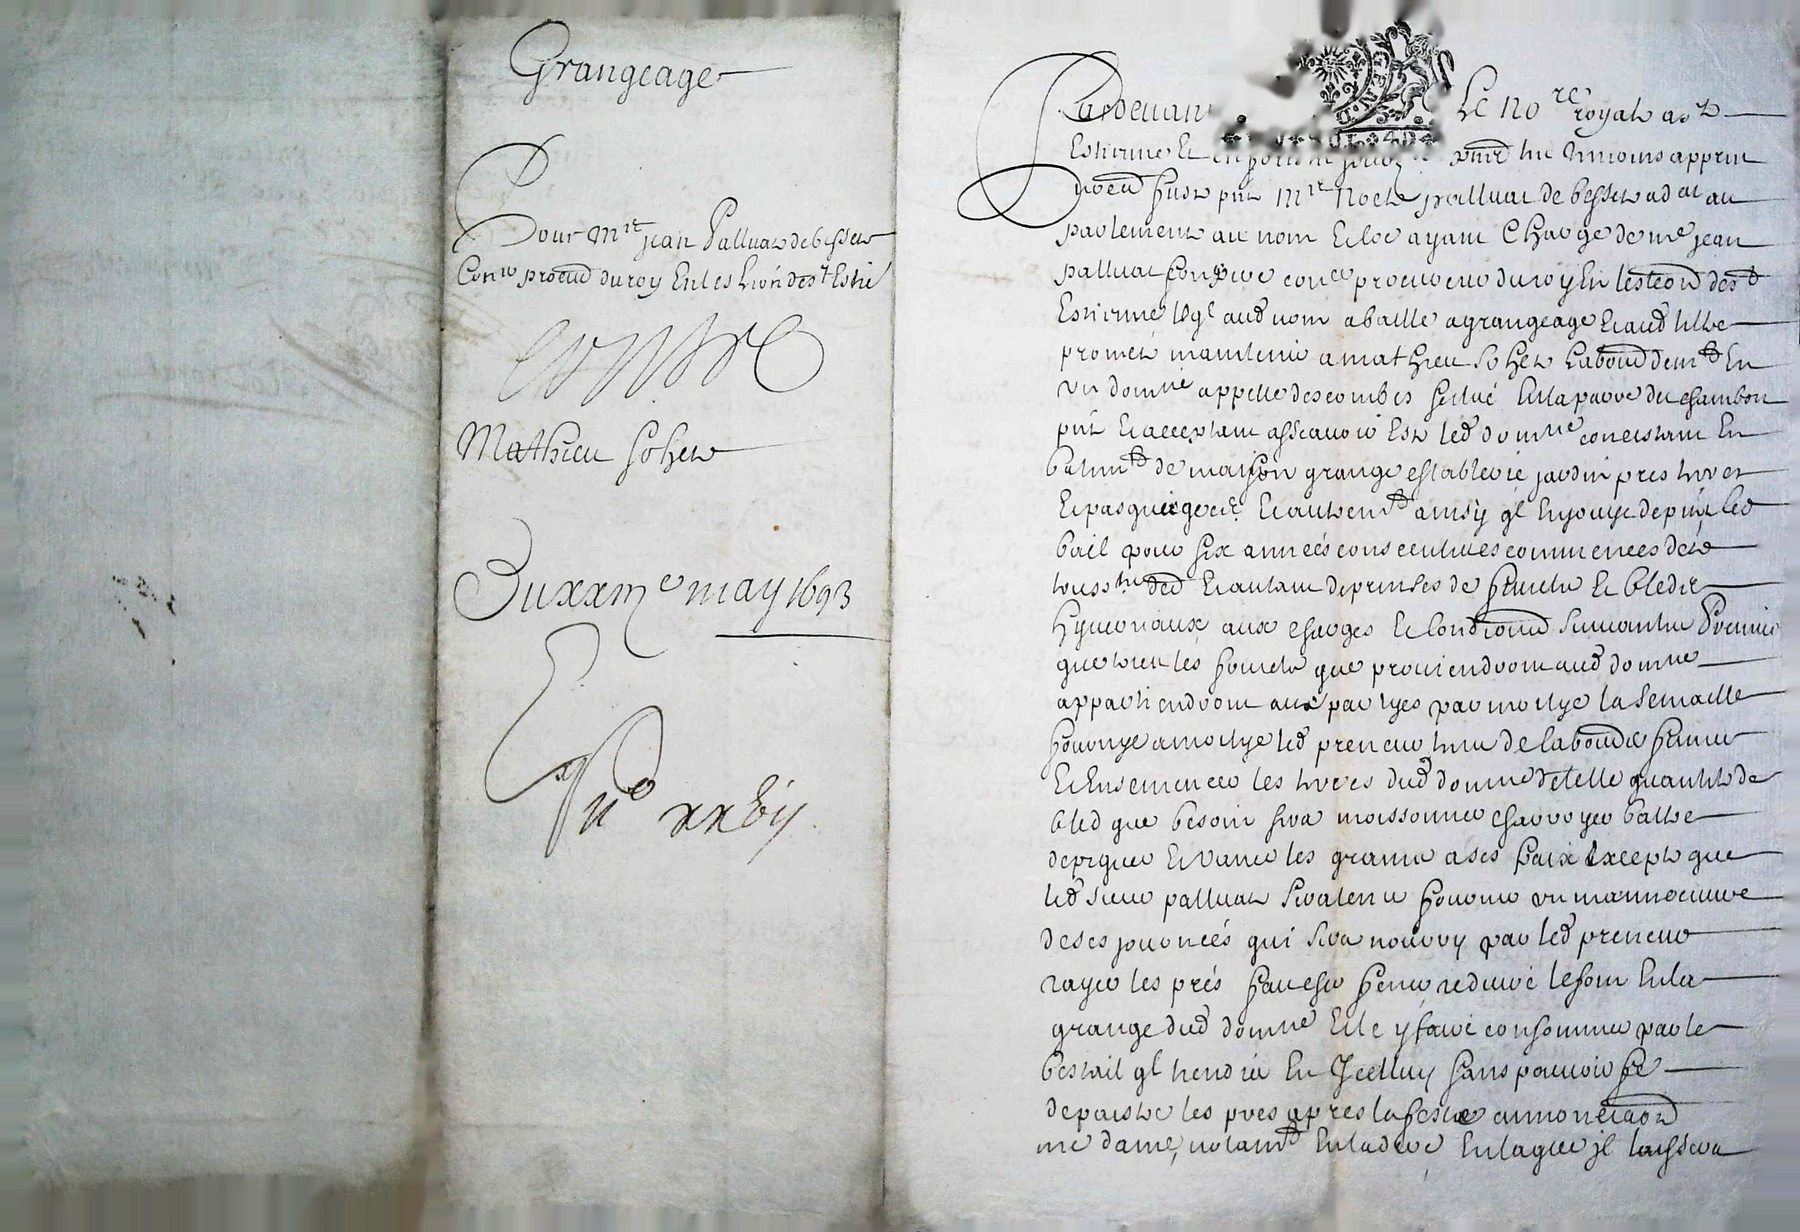 Grangeage
Pour Mre jean Palluat de besset
Conr procud du roy En les lion de st Estie
contre
Mathieu sohet
Du xxme may 1693
no xxbij
Pardevant Le nore royal a st
Estienne Et
fust pnt Mre Noel palluat de besset adat au
parlement au nom Et ayant Charge de me jean
palluat son frere coner procureur du roy En lestion de st
Estienne lql aud nom a baille a grangeage Et aud tiltre
promet maintenir a mathieu sohet laboud demt En
un domne appelle descombes scitué En la parre du chambon
pnt Et acceptant assavoir Est led domne concistant En
batimt de maison grange establerie jardin pres terres
Et pasquerages Et autremt ainsy ql En jouye depnt led
bail pour six années consecutives commencees de la
touss. Et autant de prinses de fruicts Et bledz
hyvernaux aux charges Et conditions suivantes Premier
que tous les fruicts que proviendront aud domne
appartiendront aux partyes par moitye la semaille
fournye a moitye led preneur tenu de labourer fumer
Et Ensemencer les terres dud domne de telle quantité de
bled que besoin sera moissonner charroyer battre
depiquer Et vaner les grains a ses fraix Excepté que
led sieur palluat sera tenu fournir un mannoeuvre
de ses journeés qui sera nourry par led preneur
rayer les prés faucher fener reduire le foin En la
grange dud domne Et le y faire consommer par le
bestail ql tiendra En Icelluy sans pouvoir fe
depaistre les pres apres la feste annonciaon
nre dame, notamt En ladre En laqlle jl laissera